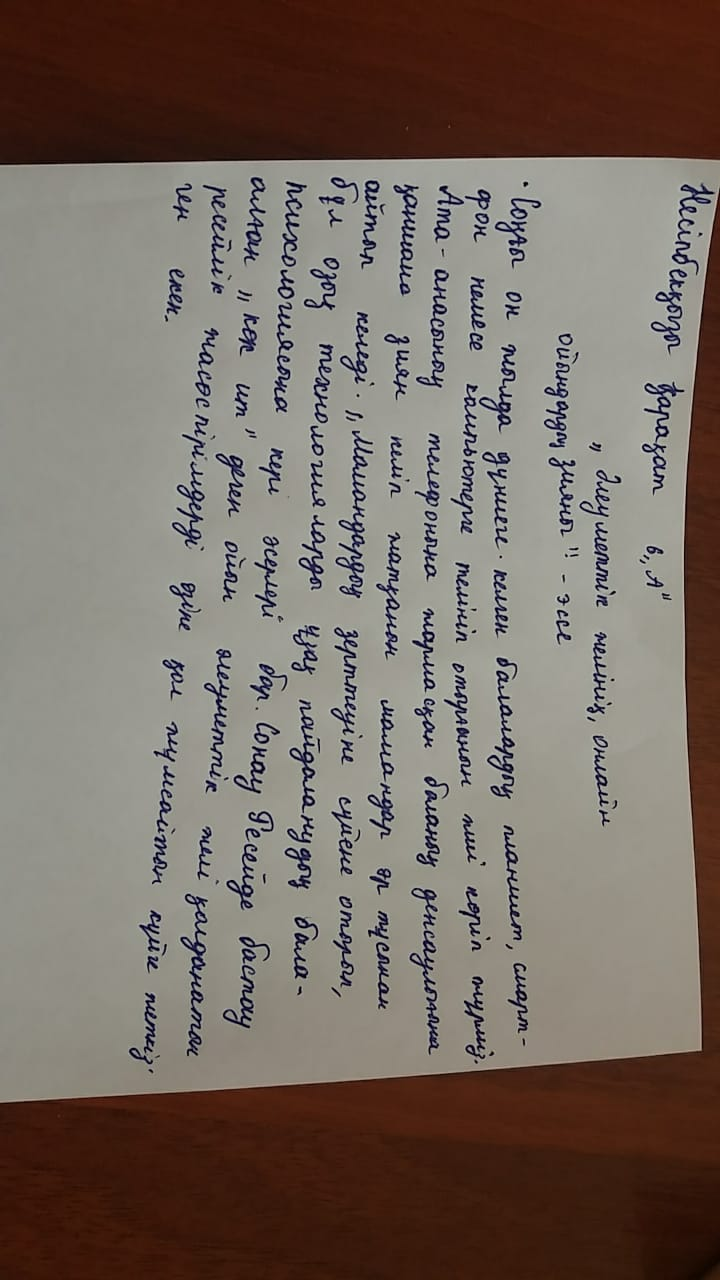 Несіпбекқызы Қарақат 8 „А"
„Әлеуметтік желінің, онлайн
ойындардың зияны" - эссе
Соңғы он жылда дүниеге келген балалардың планшет, смарт-
фон немесе компьютерге телініп отырғанын жиі көріп жүрміз.
Ата-анасының телефонына жармасқан баланың денсаулығына
қаншама зиян келіп жатқанын мамандар әр тұсынан
айтып келеді. „Мамандардың зерттеуіне сүйене отырып,
бұл озық технологияларды ұзақ пайдаланудың бала-
психологиясына кері әсерлері бар. Сонау Ресейде бастау
алған „көк ит" деген ойын әлеуметтік желі қолданатын
ресейлік жасөспірімдерді өзіне қол жұмсайтын күйге жеткіз-
ген екен.